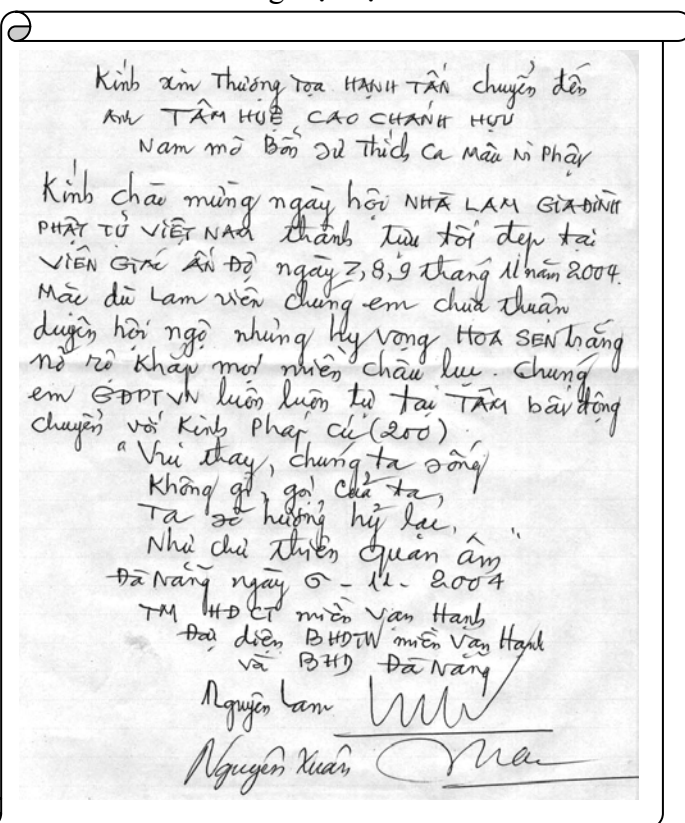 Kính xin Thượng Tọa HẠNH TẤN chuyển đến
Anh TÂM HUỆ CAO CHÁNH HỰU
Nam mô Bổn Sư Thích Ca Mâu Ni Phật
Kính chào mừng ngày hội NHÀ LAM GIA ĐÌNH
PHẬT TỬ VIỆT NAM thành tựu tốt đẹp tại
VIÊN GIÁC ẤN ĐỘ ngày 7, 8, 9 tháng 11 năm 2004.
Mặc dù Lam viên chúng em chưa thuận
duyên hội ngộ nhưng hy vọng HOA SEN trắng
nở rộ khắp mọi miền châu lục. Chúng
em GĐPTVN luôn luôn tự tại TÂM bất động
chuyển với Kinh Pháp Cú (200)
"Vui thay, chúng ta sống
Không gì, gọi của ta,
Ta sẽ hưởng hỷ lạc,
Như chư thiên Quan âm"
Đà Nẵng ngày 6 - 11 - 2004
TM HĐCT miền Vạn Hạnh
Đại diện BHDTW miền Vạn Hạnh
và BHD Đà Nẵng
Nguyên Lam
Nguyên Xuân